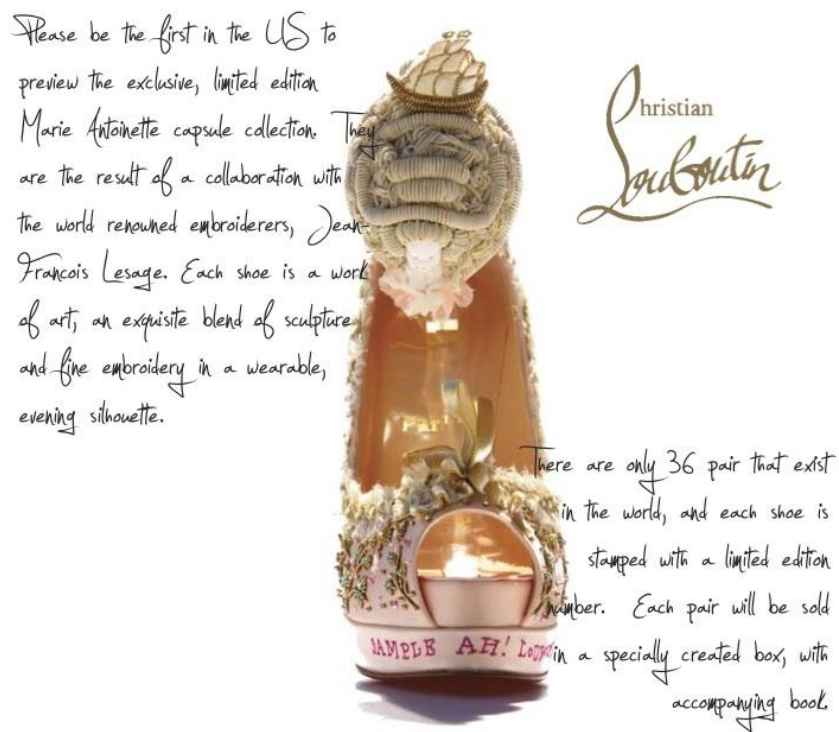 Please be the first in the US to
preview the exclusive, limited edition
Marie Antoinette capsule collection. They
are the result of a collaboration with
the world renowned embroiderers, Jean-
Francois Lesage. Each shoe is a work
of art, an exquisite blend of sculpture
and fine embroidery in a wearable,
evening silhouette.
Christian
Louboutin
Paris
There are only 36 pair that exist
in the world, and each shoe is
stamped with a limited edition
number. Each pair will be sold
in a specially created box, with
accompanying book.
SAMPLE AH!